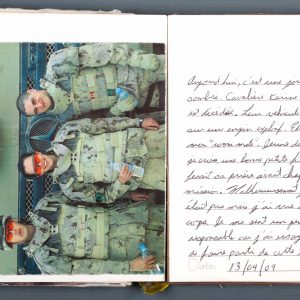 Aujourd'hui, c'est une jour
sombre. Cavalière Karine
est décédée. Leur véhicule
sur un engin explosif. C
mon "room mate". Jeune de
une bonne petite f
faisait sa prière avant chaq
mission. Malheureusement
était pris mais j'ai
corps. Je me sens un pe
responsable car j'ai essay
de faire partie de cette
Date: 13/04/09